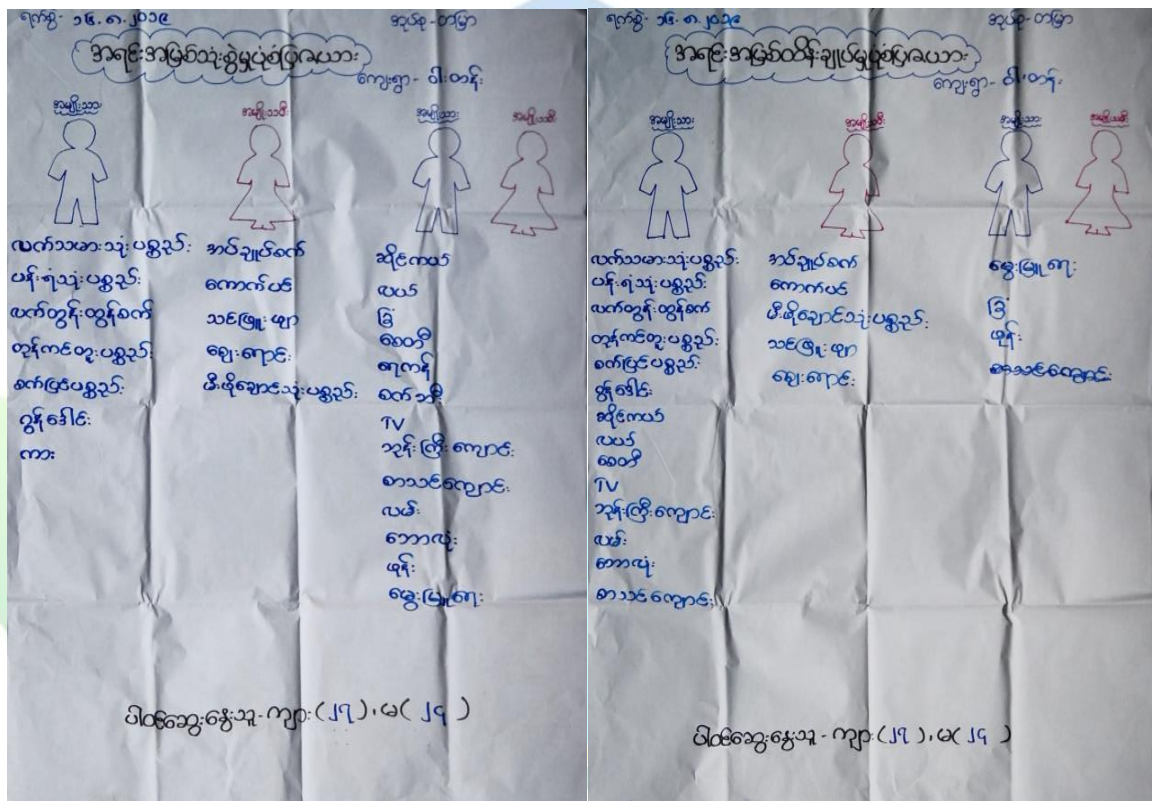 ရက်စွဲ - ၁၆.၈.၂၀၁၉
အုပ်စု - တမြာ
အရင်းအမြစ်သုံးစွဲမှုပုံစံပြဇယား
ကျေးရွာ - ဝါးတန်း
အမျိုးသား
အမျိုးသမီး
အမျိုးသား
အမျိုးသမီး
လက်သမားသုံးပစ္စည်း
ပန်းရံသုံးပစ္စည်း
လက်တွန်းထွန်စက်
တူကင်တူးပစ္စည်း
စက်ပြင်ပစ္စည်း
ဂွန်ဒေါင်း
ကား
အပ်ချုပ်စက်
ကောက်ပင်
သင်ဖြူးဖျာ
ဈေးရောင်း
မီးဖိုချောင်သုံးပစ္စည်း
ဆိုင်ကယ်
လယ်
ခြံ
စေတီ
ရေကန်
စက်ဘီး
TV
ဘုန်းကြီးကျောင်း
စာသင်ကျောင်း
လမ်း
ဘောလုံး
ဖုန်း
မွေးမြူရေး
ပါဝင်ဆွေးနွေးသူ - ကျား (၂၇)၊ မ (၂၄)
ရက်စွဲ - ၁၆.၈.၂၀၁၉
အုပ်စု - တမြာ
အရင်းအမြစ်ထိန်းချုပ်မှုပုံစံပြဇယား
ကျေးရွာ - ဝါးတန်း
အမျိုးသား
အမျိုးသမီး
အမျိုးသား
အမျိုးသမီး
လက်သမားသုံးပစ္စည်း
ပန်းရံသုံးပစ္စည်း
လက်တွန်းထွန်စက်
တူကင်တူးပစ္စည်း
စက်ပြင်ပစ္စည်း
ဂွန်ဒေါင်း
ဆိုင်ကယ်
လယ်
စေတီ
TV
ဘုန်းကြီးကျောင်း
လမ်း
ဘောလုံး
စာသင်ကျောင်း
အပ်ချုပ်စက်
ကောက်ပင်
မီးဖိုချောင်သုံးပစ္စည်း
သင်ဖြူးဖျာ
ဈေးရောင်း
မွေးမြူရေး
ခြံ
ဖုန်း
စာသင်ကျောင်း
ပါဝင်ဆွေးနွေးသူ - ကျား (၂၇)၊ မ (၂၄)